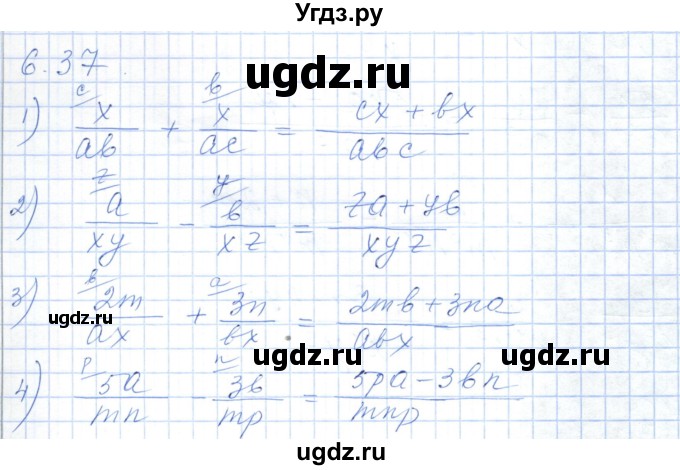 Угдз.ру
6.37.
ugdz.ru
1) c/ x/ab + b/ x/ac = (cx + bx)/abc
2) z/ a/xy - y/ b/xz = (za + yb)/xyz
3) b/ 2m/ax + a/ 3n/bx = (2mb + 3na)/abx
ugdz.ru
ugdz.ru
ugdz.ru
4) p/ 5a/mn - n/ 3b/mp = (5pa - 3bn)/mnp
ugdz.ru